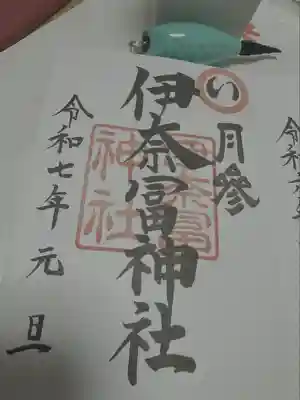 い
月參
伊奈冨神社
伊奈冨
神社
令和七年 元旦